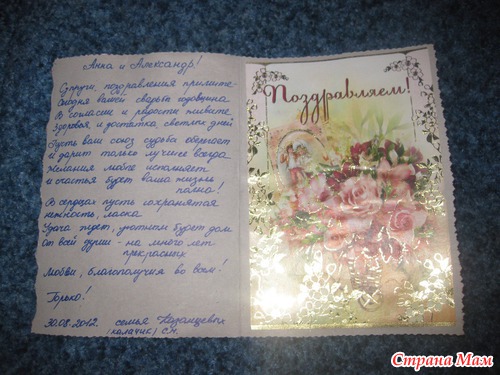 Анна и Александр!
Супруги, поздравления примите -
Сегодня вашей свадьбы годовщина
В согласии и радости живите
Здоровья и достатка, светлых дней
Пусть ваш союз судьба оберегает
и дарит только лучшее всегда
Желания любые исполняет
и счастья будет ваша жизнь
полна!
В сердцах пусть сохранятся
нежность, ласка
Удача ждет, уютным будет дом
От всей души - на много лет
прекрасных
Любви, благополучия во всем!
Горько!
30.08.2012. семья
(калачик) С.Н.
Поздравляем!
Страна Мам